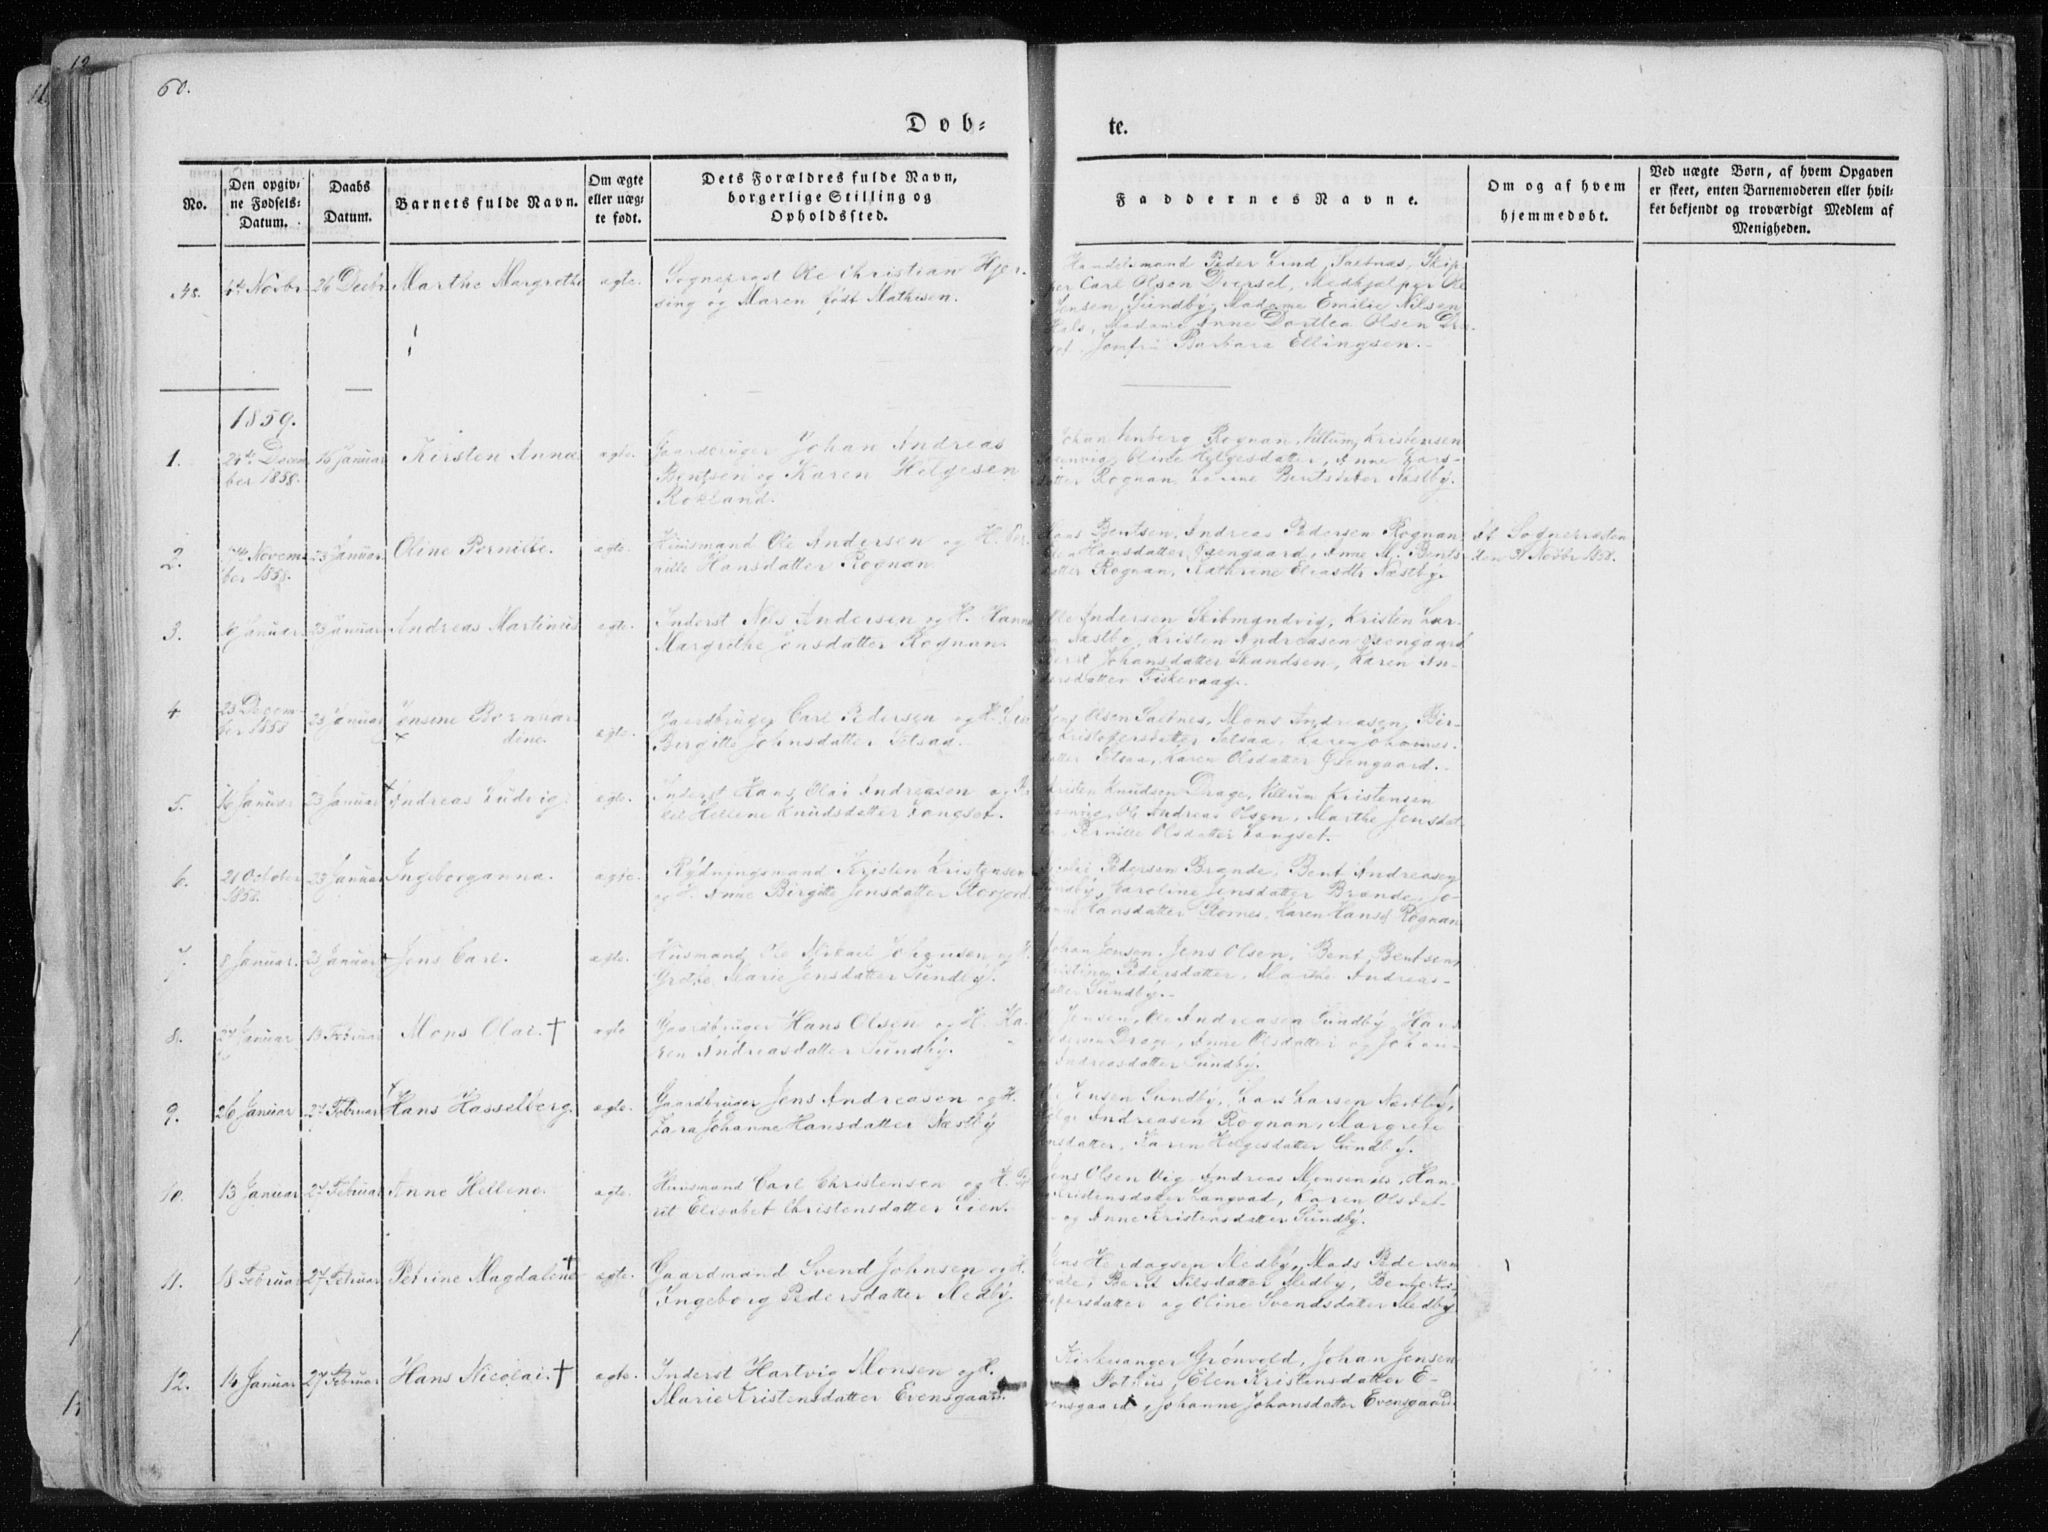 60.
Døb-
te.
No.
Den opgiv-
ne Fødsels-
Datum.
Daabs
Datum.
Barnets fulde Navn.
Om ægte
eller uæg-
te født.
Dets Forældres fulde Navn,
borgerlige Stilling og
Opholdssted.
Faddernes Navne.
Om og af hvem
hjemmedøbt.
Ved uægte Børn, af hvem Opgaven
er skeet, enten Barnemoderen eller hvil-
ket bekjendt og troværdigt Medlem af
Menigheden.
48.
Novbr
26 Decbr
Marthe Margrethe
ægte.
Sogneprest Ole Christian Hjer-
ding og Maren født Mathisen.
Handelsmand Peder Lind, Saltnæs, Skip-
per Carl Olsen Dverset, Medhjælper Ole
Jensen, Sundby, Madame Emilie Nilsen
Madame Anne Dorthea Olsen
Jomfru Barbara Ellingsen.
1859.
1.
Decem
ber 1858.
16 Januar
Kirsten Anna
ægte.
Gaardbruger Johan Andreas
Bentsen og Karen Helgesen
Rokland.
Johan Rognan, Villum Kristensen
Oline Helgesdatter, Anne Lars-
datter Rognan, Bentsdatter Næstby.
2.
Novem
ber 1858.
23 Januar
Oline Pernille.
ægte.
Huusmand Ole Andersen og H. Per-
nille Hansdatter Rognan.
Hans Bentsen, Andreas Pedersen Rognan
Hansdatter Øsengaard, Anne M. Bents-
datter Rognan, Kathrine Eliasdtr Næstby.
Af Sognepresten
den Novbr 1858.
3.
9 Januar
23 Januar
Andreas Martinus
ægte.
Inderst Nils Andersen og H. Hanna
Margrethe Jonsdatter Rognan.
Ole Andersen Skibmandvig, Kristen Lar-
sen Næstby, Kristen Andreasen Øsengaard
Berit Johansdatter Skandsen, Karen An-
dersdatter Fiskevaag.
4
23 Decem-
ber 1858
23 Januar
Jensine Bernhar-
dine.
ægte.
Gaardbruger Carl Pedersen og H.
Birgitte Johnsdatter Setsaa.
Jens Olsen Saltnes, Mons Andreasen, Bir-
Kristofersdatter Setsaa, Karen Johannes-
datter Setsaa, Karen Olsdatter Øsengaard.
5.
16 Januar
23 Januar
Andreas Ludvig
ægte.
Inderst Hans Olai Andreasen og
Hellene Knudsdatter Langset.
Kristen Knudsen Drage, Villum Kristensen
Ole Andreas Olsen, Marthe Jensdat-
ter, Pernille Olsdatter Langset.
6.
21 October
1858.
23 Januar
Ingeborganna.
ægte.
Rydningsmand Kristen Kristensen
og H. Anne Birgitte Jensdatter Storjord.
Pedersen Brænde, Bent Andreasen
Sundby, Karoline Jensdatter Brænde, Jo-
hanne Hansdatter Stornes, Karen Hansd. Rognan
7.
8 Januar.
23 Januar
Jens Carl.
ægte.
Husmand Ole Mikael Johansen og H.
Grethe Marie Jensdatter Sundby.
Johan Jensen, Jens Olsen, Bent Bentsen,
Kristine Pedersdatter, Marthe Andreas-
datter Sundby.
8.
24 Januar
13 Februar
Mons Olai. †
ægte
Gaardbruger Hans Olsen og H. Ka-
ren Andreasdatter Sundby.
Jensen, Ole Andreasen Sundby, Hans
Pedersen Drage, Anne Olsdatter og Johan-
Andreasdatter Sundby.
9.
26 Januar
27 Februar
Hans Hasselberg.
ægte.
Gaardbruger Jens Andreasen og H.
Lara Johanne Hansdatter Næstby
Jensen Sundby, Lars Larsen Næstby,
Andreasen Rognan, Margrete
Karen Helgesdatter Sundby.
10.
13 Januar
27 Februar
Anne Hellene.
ægte.
Huusmand Carl Christensen og H.
Elisabet Christensdatter Lien.
Jens Olsen Vig, Andreas Monsen Han-
Kristensdatter Langvad, Karen Olsdat-
og Anne Kristensdatter Sundby.
11.
18 Februar
27 Februar
Petrine Magdalene †
ægte.
Gaardmand Svend Johnsen og H.
Ingeborg Pedersdatter Medby.
Jens Herdagsen Medby, Mads Pedersen
Berit Nilsdatter Medby, Bente Kri-
stofersdatter og Oline Svendsdatter Medby
12.
14 Januar
27 Februar
Hans Nicolai. †
ægte.
Inderst Hartvig Monsen og H.
Marie Kristensdatter Evensgaard.
Kirkesanger Grønvold, Johan Jensen
Bothus, Elen Kristensdatter E-
vensgaard, Johanne Johansdatter Evensgaard.